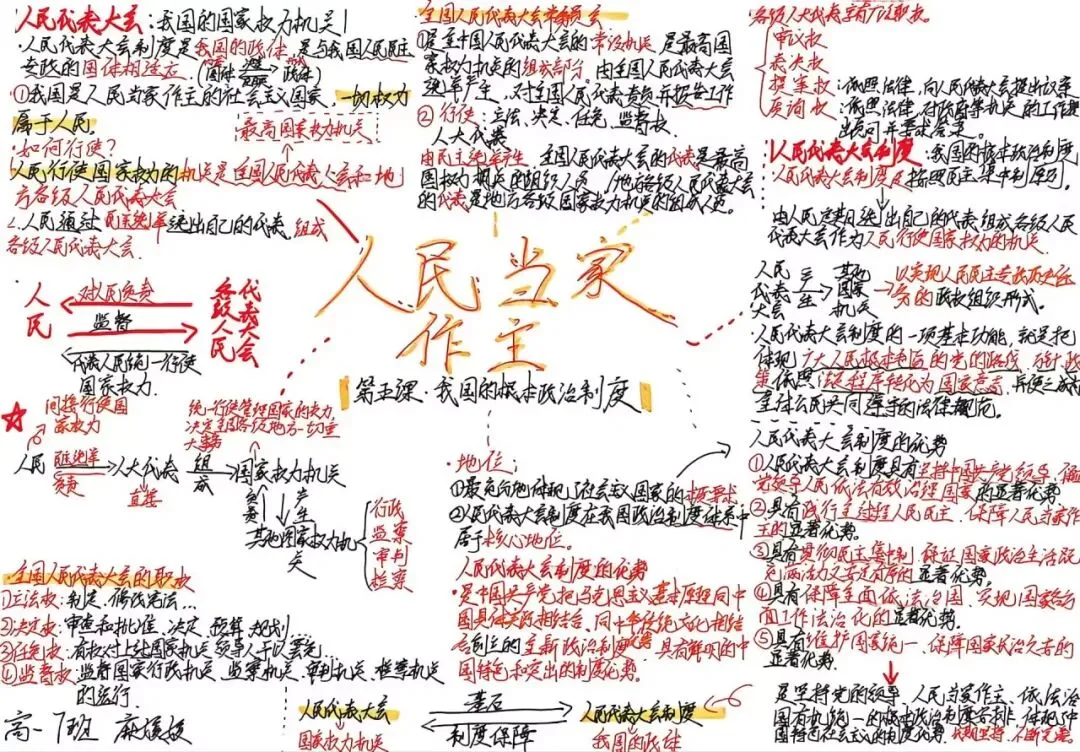 人民代表大会:我国的国家权力机关
·人民代表大会制度是我国的政体,是与我国人民民主
专政的国体相适应。(国体 决定 政体)
①我国是人民当家作主的社会主义国家,一切权力
属于人民。
最高国家权力机关
·如何行使?
人民行使国家权力的机关是全国人民代表大会和地
方各级人民代表大会
2.人民通过民主选举选出自己的代表,组成
各级人民代表大会.
人民
对人民负责
监督
各级人民代表大会
代表人民统一行使
国家权力
间接行使国
家权力
统一行使管理国家的权力
决定全国各级地方一切重
大事务
人民
民主选举
负责
人大代表
直接
组成
国家权力机关
负责
产生
其他国家权力机关
行政
监察
审判
检察
·全国人民代表大会的职权
①立法权:制定、修改宪法...
②决定权:审查和批准、决定、预算、规划
③任免权:有权对上述国家机关领导人予以罢免...
④监督权:监督国家行政机关、监察机关、审判机关、检察机关
的运行
高一7班
全国人民代表大会常委员会
①是全国人民代表大会的常设机关,是最高国
家权力机关的组成部分。由全国人民代表大会
选举产生,对全国人民代表大会负责并报告工作
②行使:立法、决定、任免、监督权.
人大代表
由民主选举产生 全国人民代表大会的代表是最高
国权力机关的组织人员 /地方各级人民代表大会
的代表是地方各级国家权力机关的组成人员。
人民当家
作主
第五课·我国的根本政治制度
·地位:
①最充分地体现了社会主义国家的本质要求
②人民代表大会制度在我国政治制度体系中
居于核心地位。
人民代表大会制度的优势
·是中国共产党把马克思主义基本原理同中
国具体实际相结合、同中华传统文化相结合
创立的全新政治制度,具有鲜明的中
国特色和突出的制度优势.
人民代表大会
国家权力机关
基石
制度保障
人民代表大会制度
我国的政体
各级人大代表享有广泛职权。
审议权
表决权
提案权:依照法律,向人民代表大会提出议案
质询权:依照法律,对政府等机关的工作提
出质问并要求答复。
人民代表大会制度:我国的根本政治制度
人民代表大会制度是按照民主集中制原则,
由人民定期选出自己的代表组成各级人民
代表大会作为人民行使国家权力的机关
人民代表大会
产生
其他国家机关
以实现人民民主专政历史任
务的政权组织形式。
·人民代表大会制度的一项基本功能,就是把
体现广大人民根本利益的党的路线、方针政
策依照法定程序转化为国家意志,并使之成为
全体公民共同遵守的法律规范。
人民代表大会制度的优势
①人民代表大会制度具有坚持中国共产党领导,确
党领导人民依法有效治理国家的显著优势
②具有践行全过程人民民主、保障人民当家作
主的显著优势。
③具有贯彻民主集中制、保证国家政治生活既
充满活力又安定有序的显著优势。
④具有保障全面依法治国、实现国家各方
面工作法治化的显著优势.
⑤具有维护国家统一、保障国家长治久安的
显著优势.
是坚持党的领导、人民当家作主、依法治
国有机统一的根本政治制度安排,体现中
国特色社会主义的制度优势,长期坚持、不断完善.